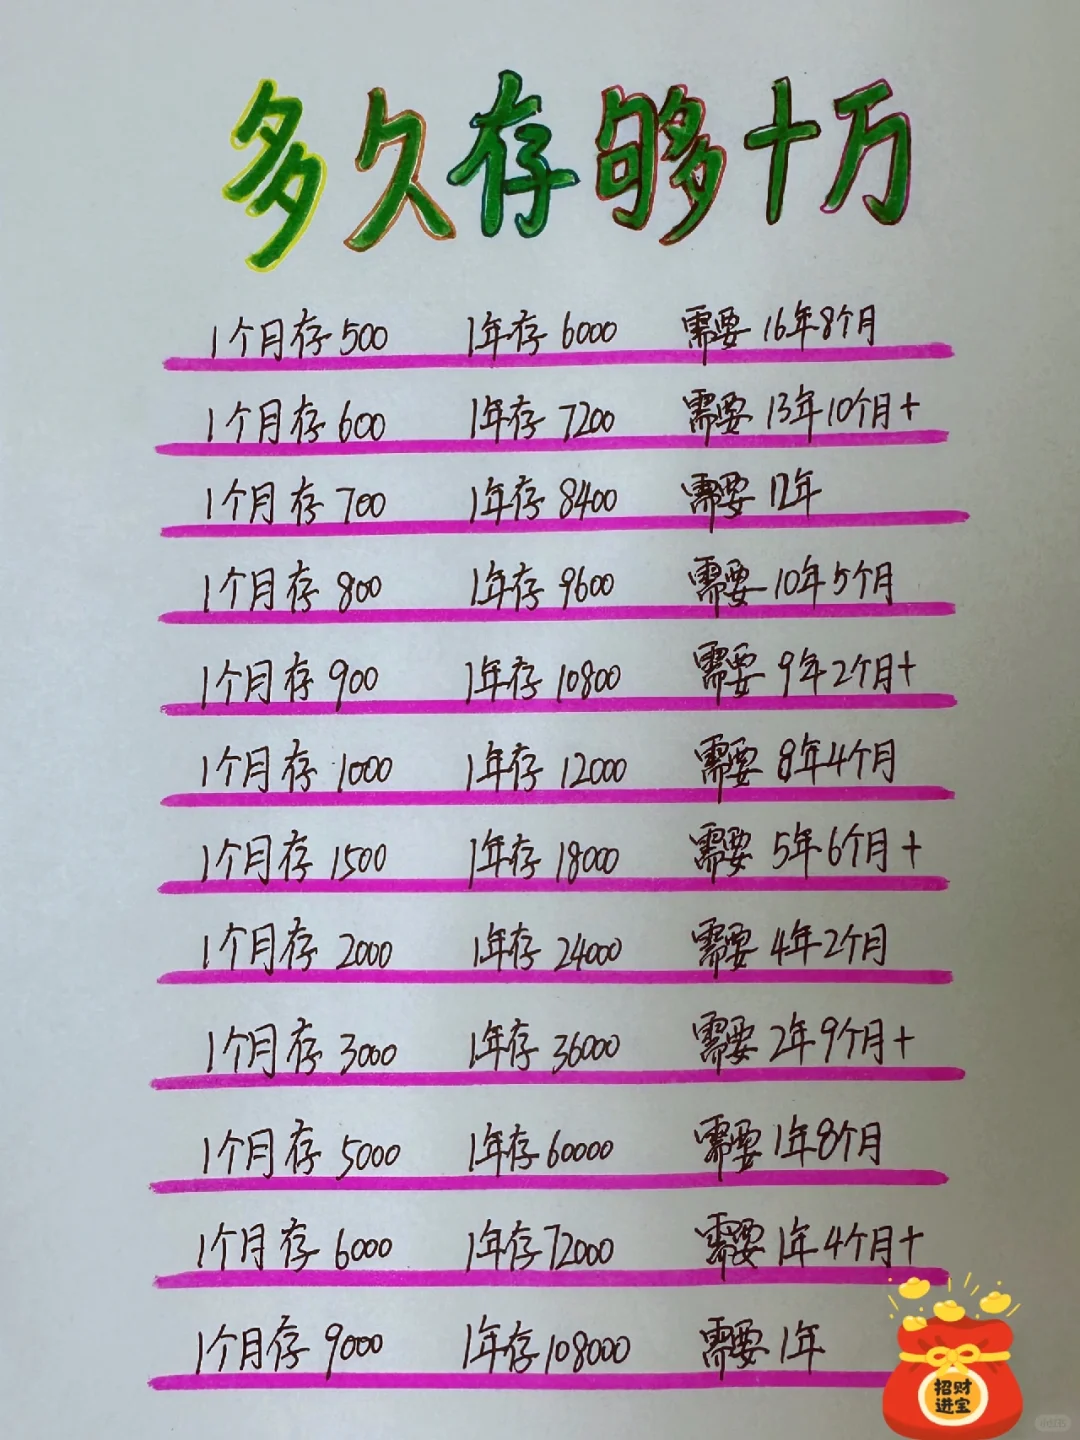 多久存够十万
1个月存500 1年存6000 需要16年8个月
1个月存600 1年存7200 需要13年10个月+
1个月存700 1年存8400 需要12年
1个月存800 1年存9600 需要10年5个月
1个月存900 1年存10800 需要9年2个月+
1个月存1000 1年存12000 需要8年4个月
1个月存1500 1年存18000 需要5年6个月+
1个月存2000 1年存24000 需要4年2个月
1个月存3000 1年存36000 需要2年9个月+
1个月存5000 1年存60000 需要1年8个月
1个月存6000 1年存72000 需要1年4个月+
1个月存9000 1年存108000 需要1年
招财
进宝